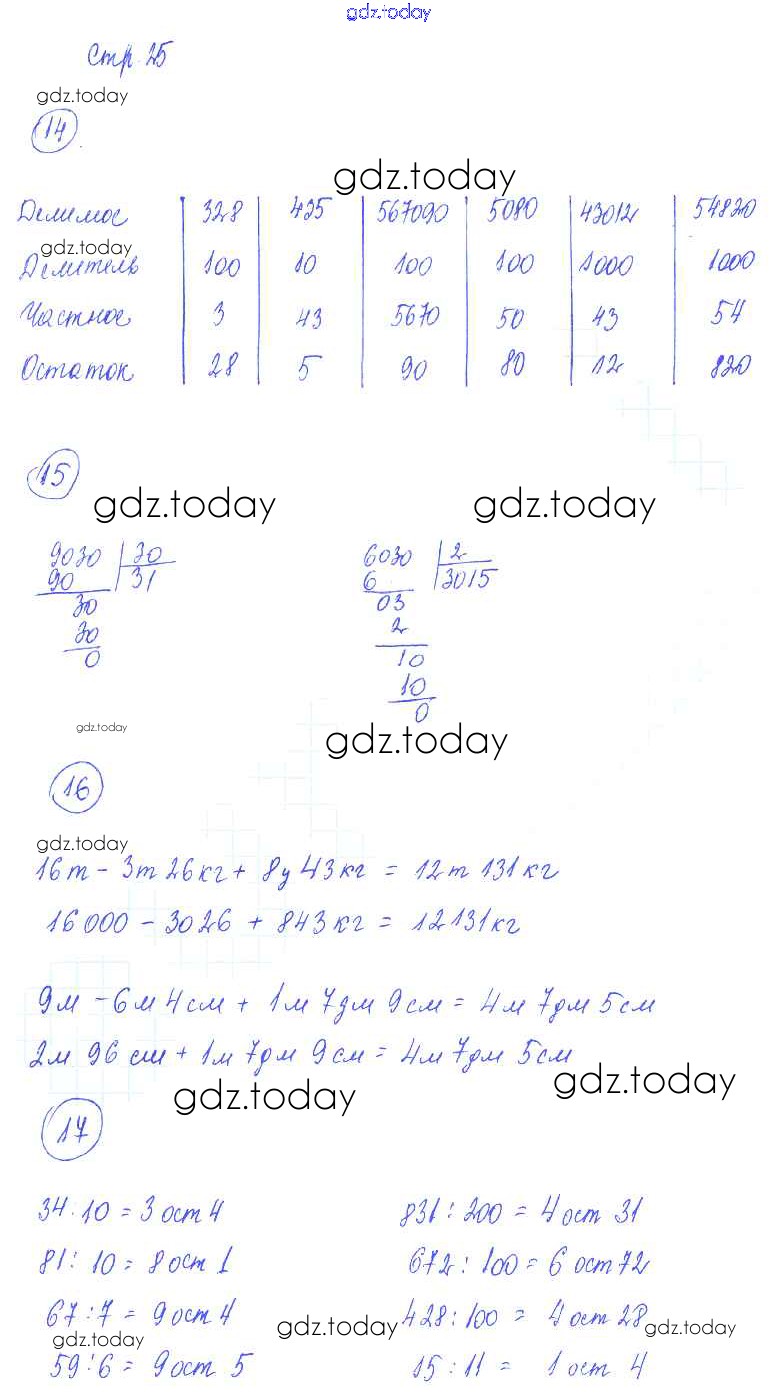 gdz.today
Стр. 25
gdz.today
14.
gdz.today
Делимое 328 435 567090 5080 43012 54820
gdz.today
Делитель 100 10 100 100 1000 1000
Частное 3 43 5670 50 43 54
Остаток 28 5 90 80 12 820
15
gdz.today gdz.today
9030 30 6030 2
90 31 6 3015
30 03
30 2
0 10
10
0
gdz.today
gdz.today
16
gdz.today
16т - 3т 26кг + 8ц 43кг = 12т 131кг
16000 - 3026 + 843кг = 12131кг
9м - 6м 4см + 1м 7дм 9см = 4м 7дм 5см
2м 96см + 1м 7дм 9см = 4м 7дм 5см
gdz.today gdz.today
17
34:10 = 3 ост 4 831:200 = 4 ост 31
81:10 = 8 ост 1 672:100 = 6 ост 72
67:7 = 9 ост 4 428:100 = 4 ост 28
gdz.today gdz.today gdz.today
59:6 = 9 ост 5 15:11 = 1 ост 4